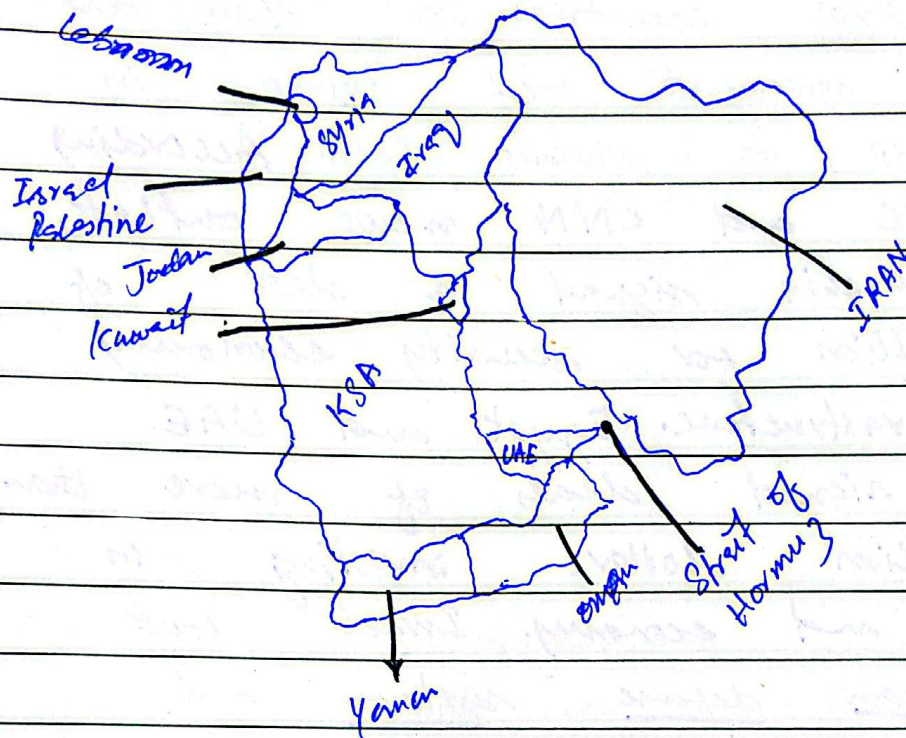 Lebanon
Syria
Iraq
Israel
Palestine
Jordan
Kuwait
IRAN
KSA
UAE
Strait of
Hormuz
Oman
Yaman